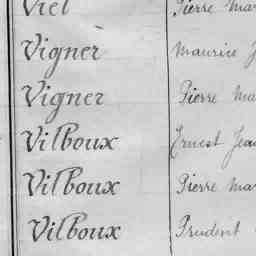 Viel Pierre Mar
Vigner Maurice J
Vigner Pierre Ma
Vilboux Ernest Jea
Vilboux Pierre Mar
Vilboux Prudent